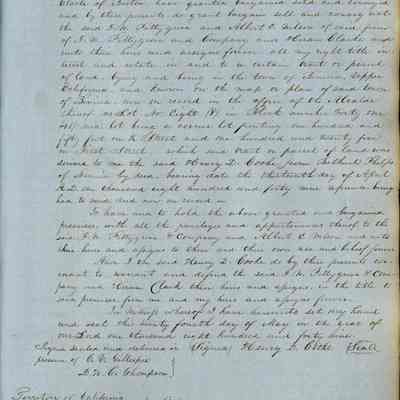 Clarke of Boston have granted bargained sold and conveyed
and by these presents do grant bargain sell and convey unto
the said J. W. Pettygrove and Albert E. Wilson of said firm
of J. W. Pettygrove and Company and Hiram Clarke and
unto their heirs and assigns forever all my right title in
terest and estate in and to a certain tract or parcel
of land lying and being in the town of Benicia, Upper
California, and known on the map or plan of said town
of Benicia now on record in the office of the Alcalde
thereof as Lot No. Eight (8) in Block number forty one
said lot being a corner lot fronting one hundred and
fifty feet on K Street and one hundred and twenty five
on First Street which said tract or parcel of land was
deeded to me the said Henry D. Cooke from Bethuel Phelps
of Benicia by deed bearing date the thirteenth day of April
A.D. one thousand eight hundred and forty nine reference being
had to said deed now on record in
To have and to hold the above granted and bargained
premises, with all the privileges and appurtenances thereof to the
said J. W. Pettygrove & Company and Albert E. Wilson and unto
their heirs and assigns to their and their own use and behoof forever
And I the said Henry D. Cooke do by these presents cove
nant to warrant and defend the said J. W. Pettygrove & Com
pany and Hiram Clark their heirs and assigns, in the title to
said premises from me and my heirs and assigns forever.
In Witness whereof I have hereunto set my hand
and seal this twenty fourth day of May in the year of
our Lord one thousand eight hundred and forty nine
Signed Sealed and delivered in (Signed) Henry D. Cooke (Seal)
presence of C. V. Gillespie
D. W. C. Thompson
Territory of California